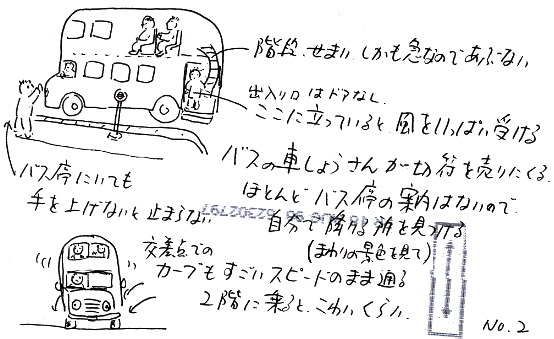 階段、せまい、しかも急なのであぶない
出入り口はドアなし。
ここに立っていると、風をいっぱい受ける
バスの車しょうさんが切符を売りにくる。
ほとんどバス停の案内はないので、
自分で降りる所を見つける
(まわりの景色を見て)
バス停にいても
手を上げないと止まらない
交差点での
カーブもすごいスピードのまま通る
2階に乗ると、こわいくらい。
No.2